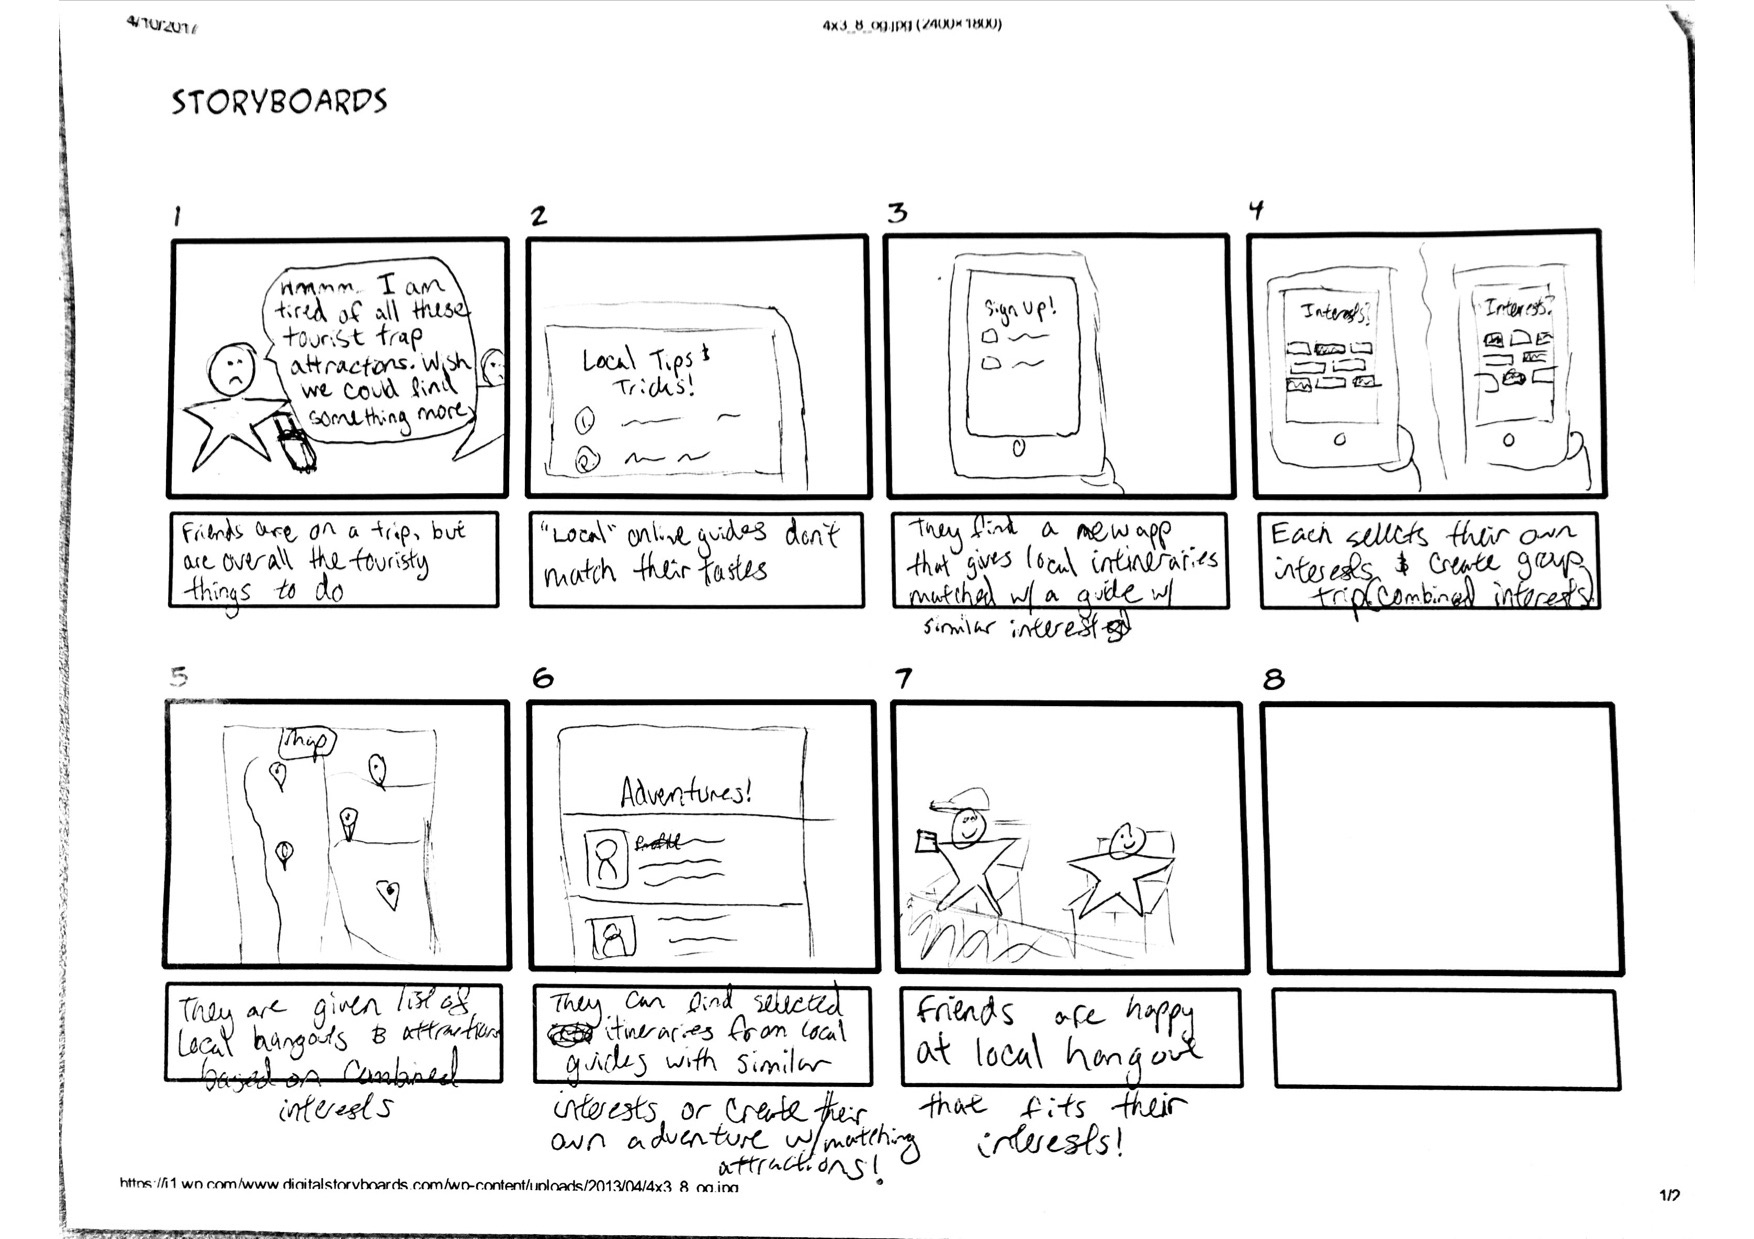 4/10/2017
4x3_8_og.jpg (2400×1800)
STORYBOARDS
1
2
3
4
Hmmm.. I am
tired of all these
tourist trap
attractons. Wish
we could find
something more
Local Tips &
Tricks!
1.
2.
Sign Up!
Interests?
Interests?
Friends are on a trip, but
are overall the touristy
things to do
"Local" online guides don't
match their tastes
They find a new app
that gives local intineraries
matched w/ a guide w/
similar interest
Each sellcts their own
interests & create group
trip (combined interests)
5
6
7
8
Map
Adventures!
They are given list of
local hangouts & attractions
based on combined
interests
They can find selected
itineraries from local
guides with similar
interests or create their
own adventure w/matching
attractions!
Friends are happy
at local hangout
that fits their
interests!
https://i1.wp.com/www.digitalstoryboards.com/wp-content/uploads/2013/04/4x3_8_og.jpg
1/2